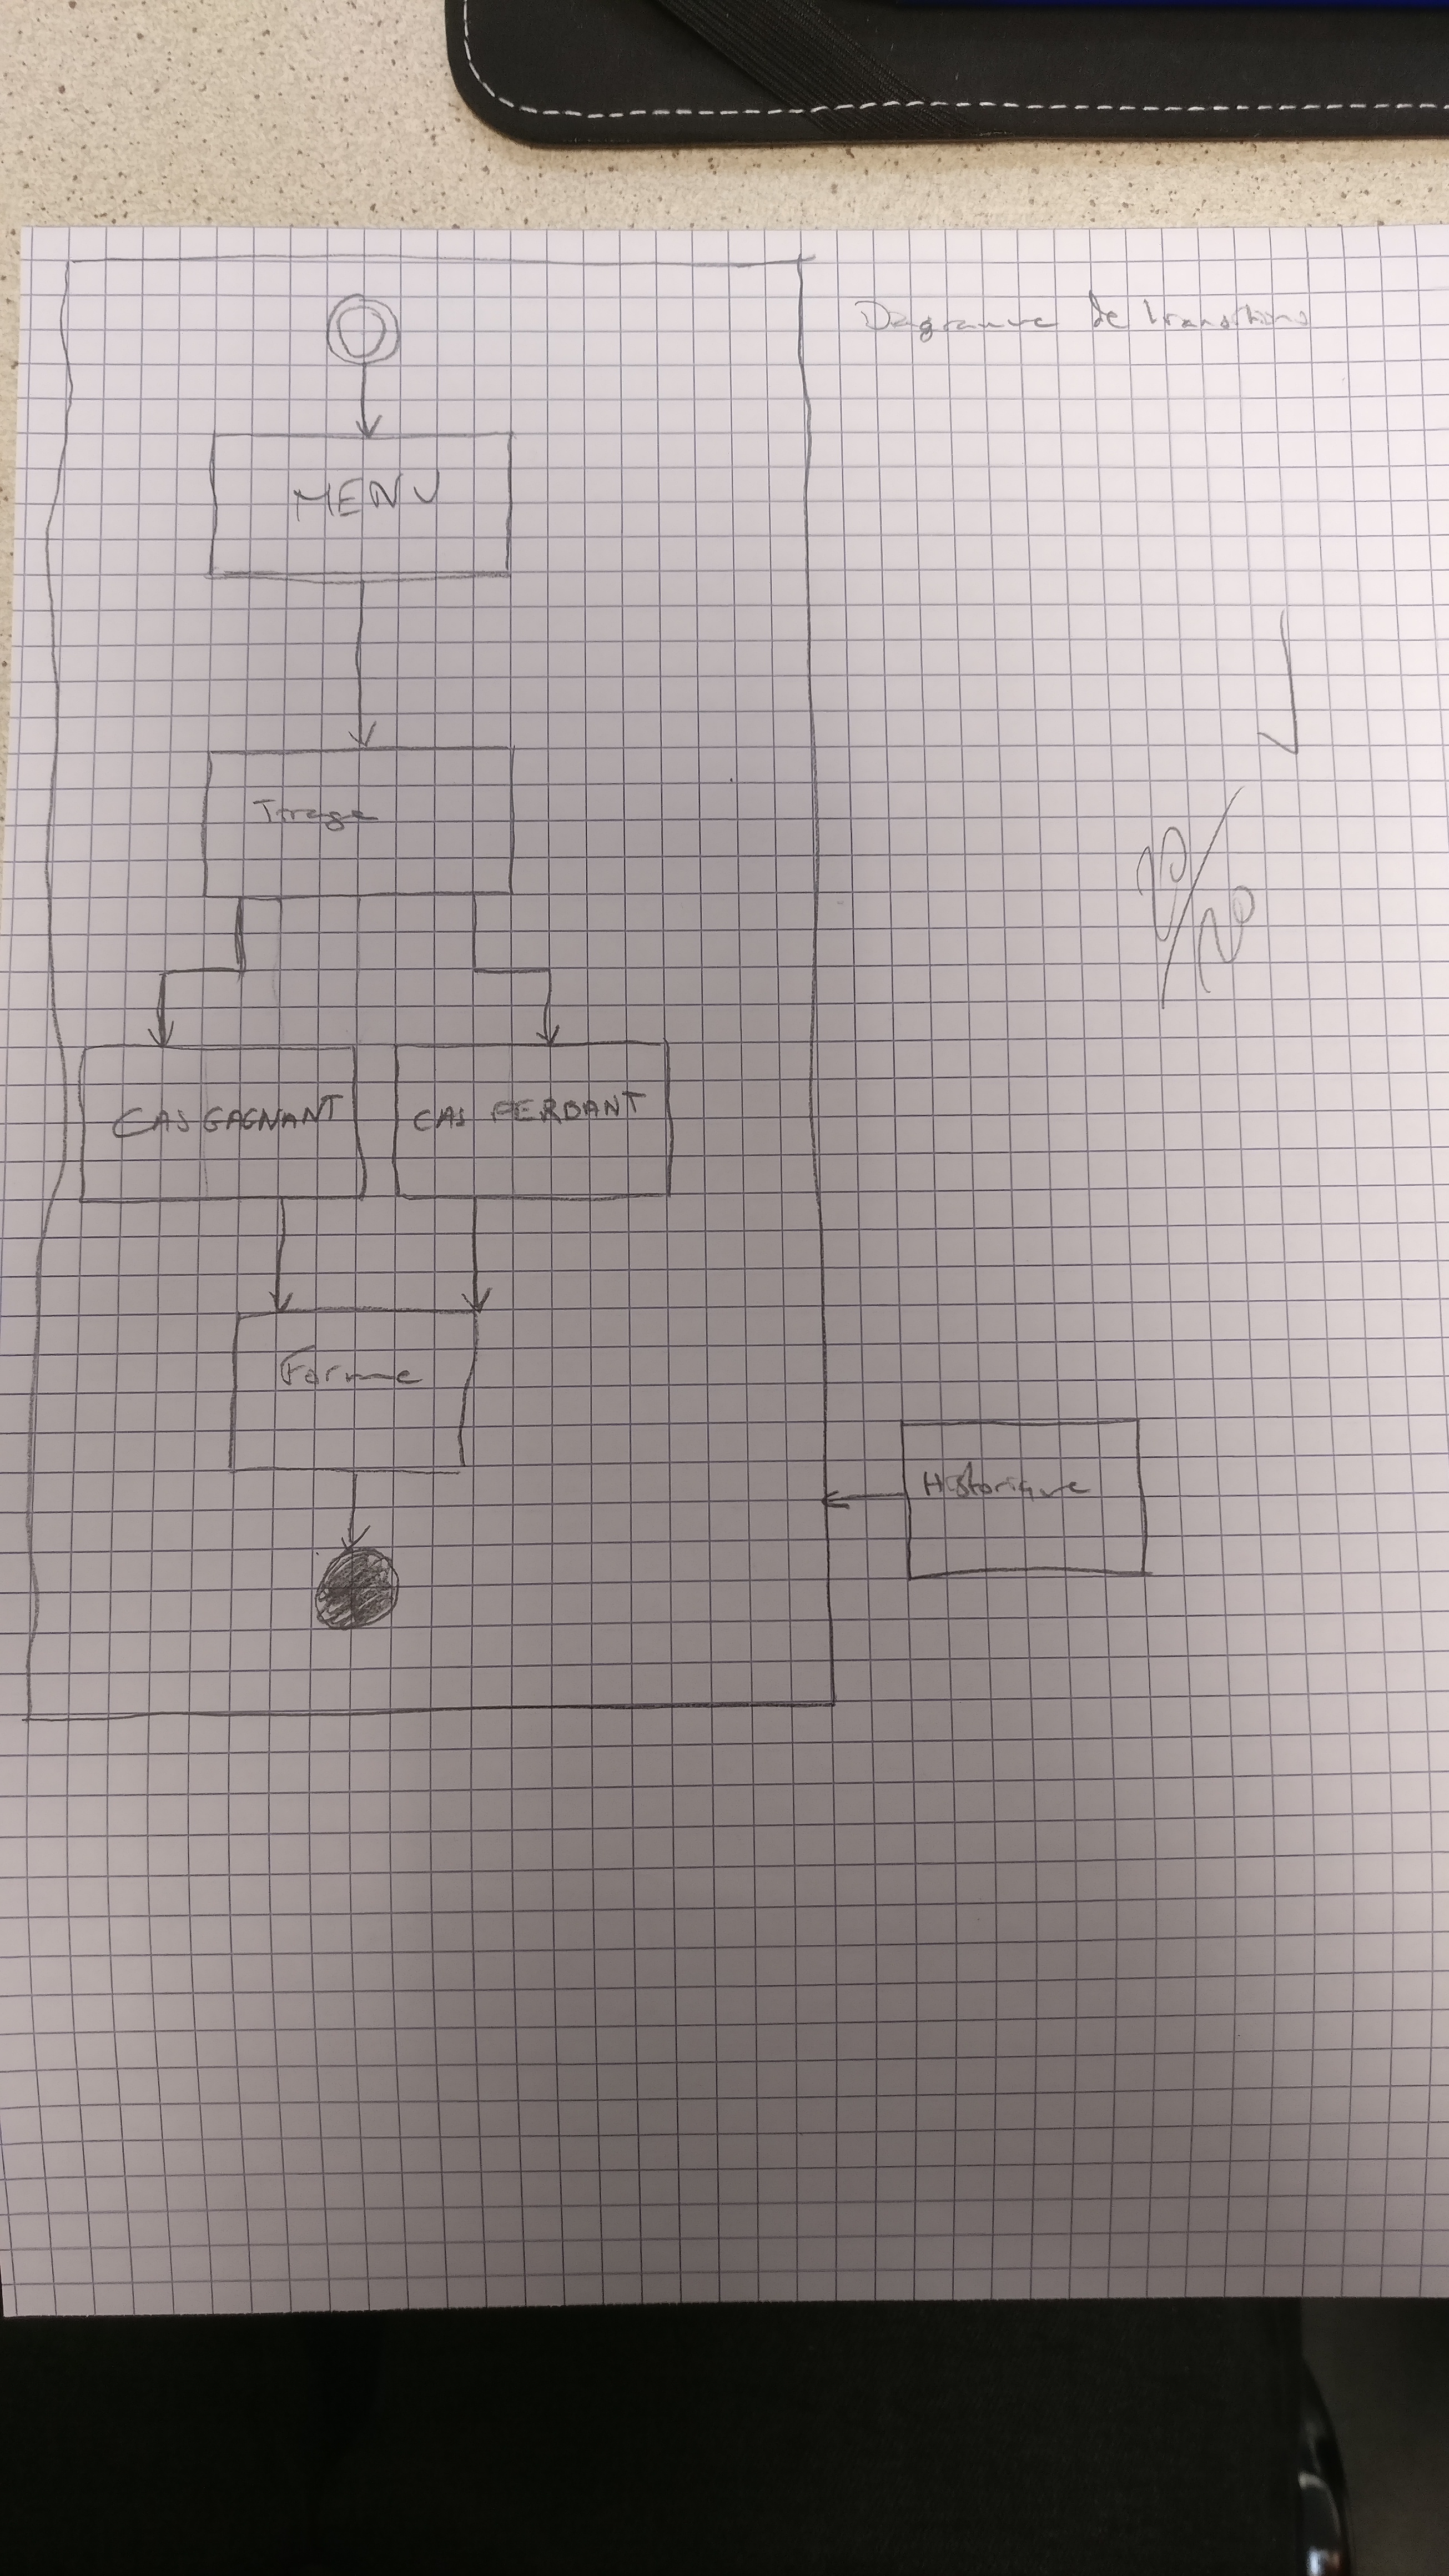 Diagramme de transitions
MENU
Tirage
20/20
CAS GAGNANT
CAS PERDANT
Forme
Historique